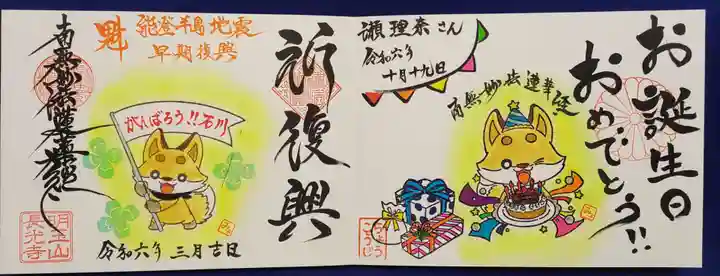 お誕生日
おめでとう!!
南無妙法蓮華経
瀬理奈さん
令和六年
十月十九日
祈復興
魁
能登半島地震
早期復興
がんばろう!!石川
令和六年三月吉日
南無妙法蓮華経
明玉山
長光寺
ちょう
こうじ